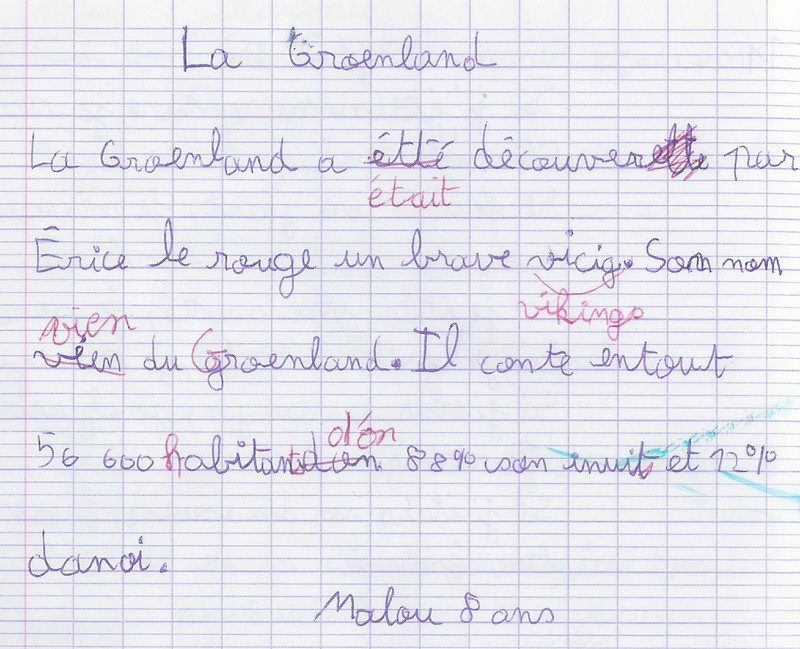 La Groenland
La Groenland a étté découver par
était
Érice le rouge un brave vicig. Son nom
vikings
vien
vien du Groenland. Il conte entout
d'on
56 600 habitants don 88% son inuit et 12%
danoi.
Malou 8 ans